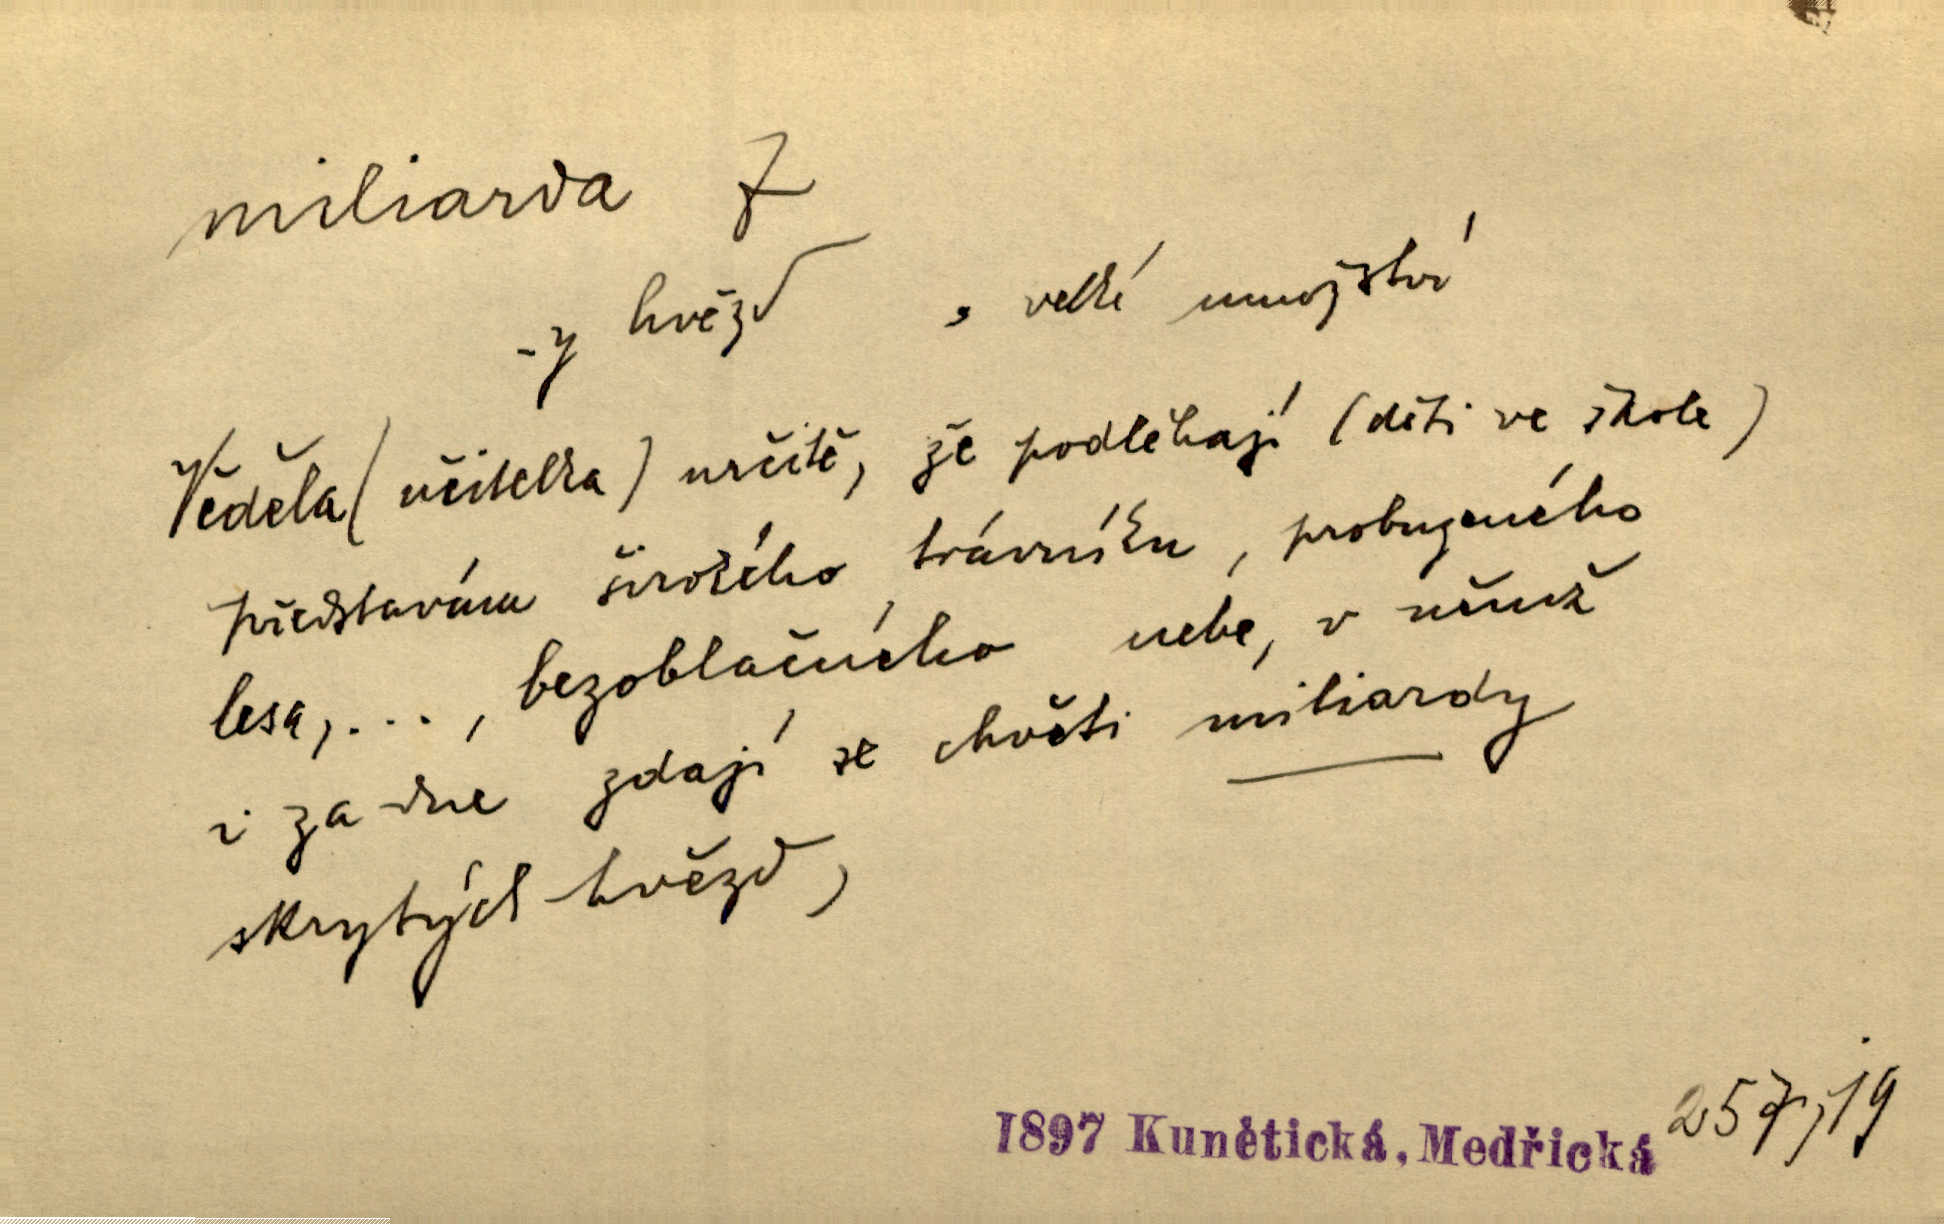 miliarda f
-y hvězd, velké množství
Věděla (učitelka) určitě, že podléhají (děti ve škole)
představám širokého trávníku, probuzeného
lesa, ..., bezoblačného nebe, v němž
i za dne zdají se chvěti miliardy
skrytých hvězd,
1897 Kunětická, Medřická 257,19